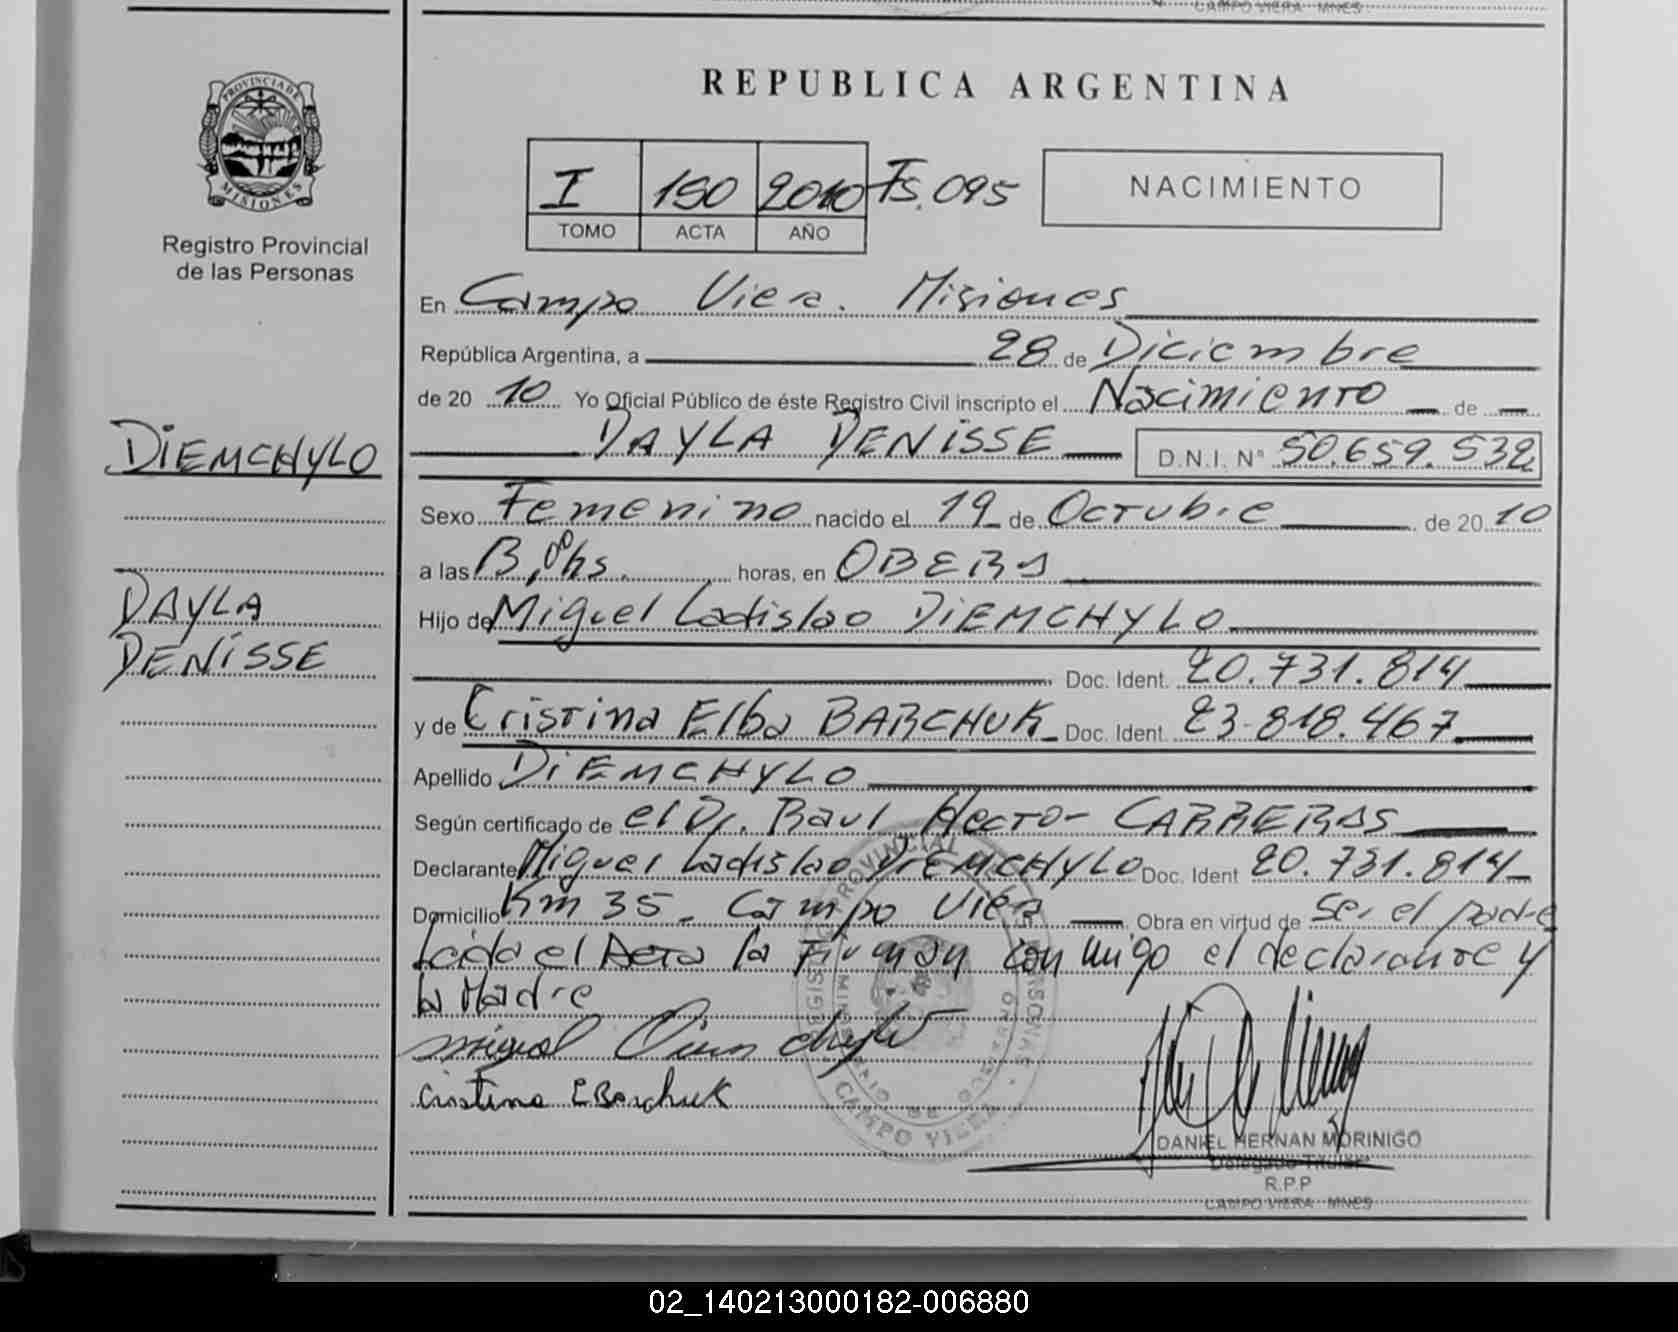 CAMPO VIERA MNES
REPUBLICA ARGENTINA
PROVINCIA DE MISIONES
Registro Provincial
de las Personas
I 190 2010 Fs. 095
TOMO ACTA AÑO
NACIMIENTO
En Campo Viera. Misiones
República Argentina, a 28 de Diciembre
de 20 10 Yo Oficial Público de éste Registro Civil inscripto el Nacimiento de
DAYLA DENISSE D.N.I. N° 50.659.532
DIEMCHYLO
Sexo Femenino nacido el 19 de Octubre de 20 10
a las hs. horas, en OBERA
DAYLA
DENISSE
Hijo de Miguel Ladislao DIEMCHYLO
Doc. Ident. 20.731.814
y de Cristina Elba BARCHUK Doc. Ident. 23.818.467
Apellido DIEMCHYLO
Según certificado de el Dr. Raul Hector CARRERAS
Declarante Miguel Ladislao DIEMCHYLO Doc. Ident 20.731.814
Domicilio Km 35 - Campo Viera Obra en virtud de Ser el padre
Leida el Acta la Firman conmigo el declarante y
la Madre
Cristina E Barchuk
CAMPO VIERA
DANIEL HERNAN MORINIGO
Delegado Titular
R.P.P
CAMPO VIERA MNES
02_140213000182-006880